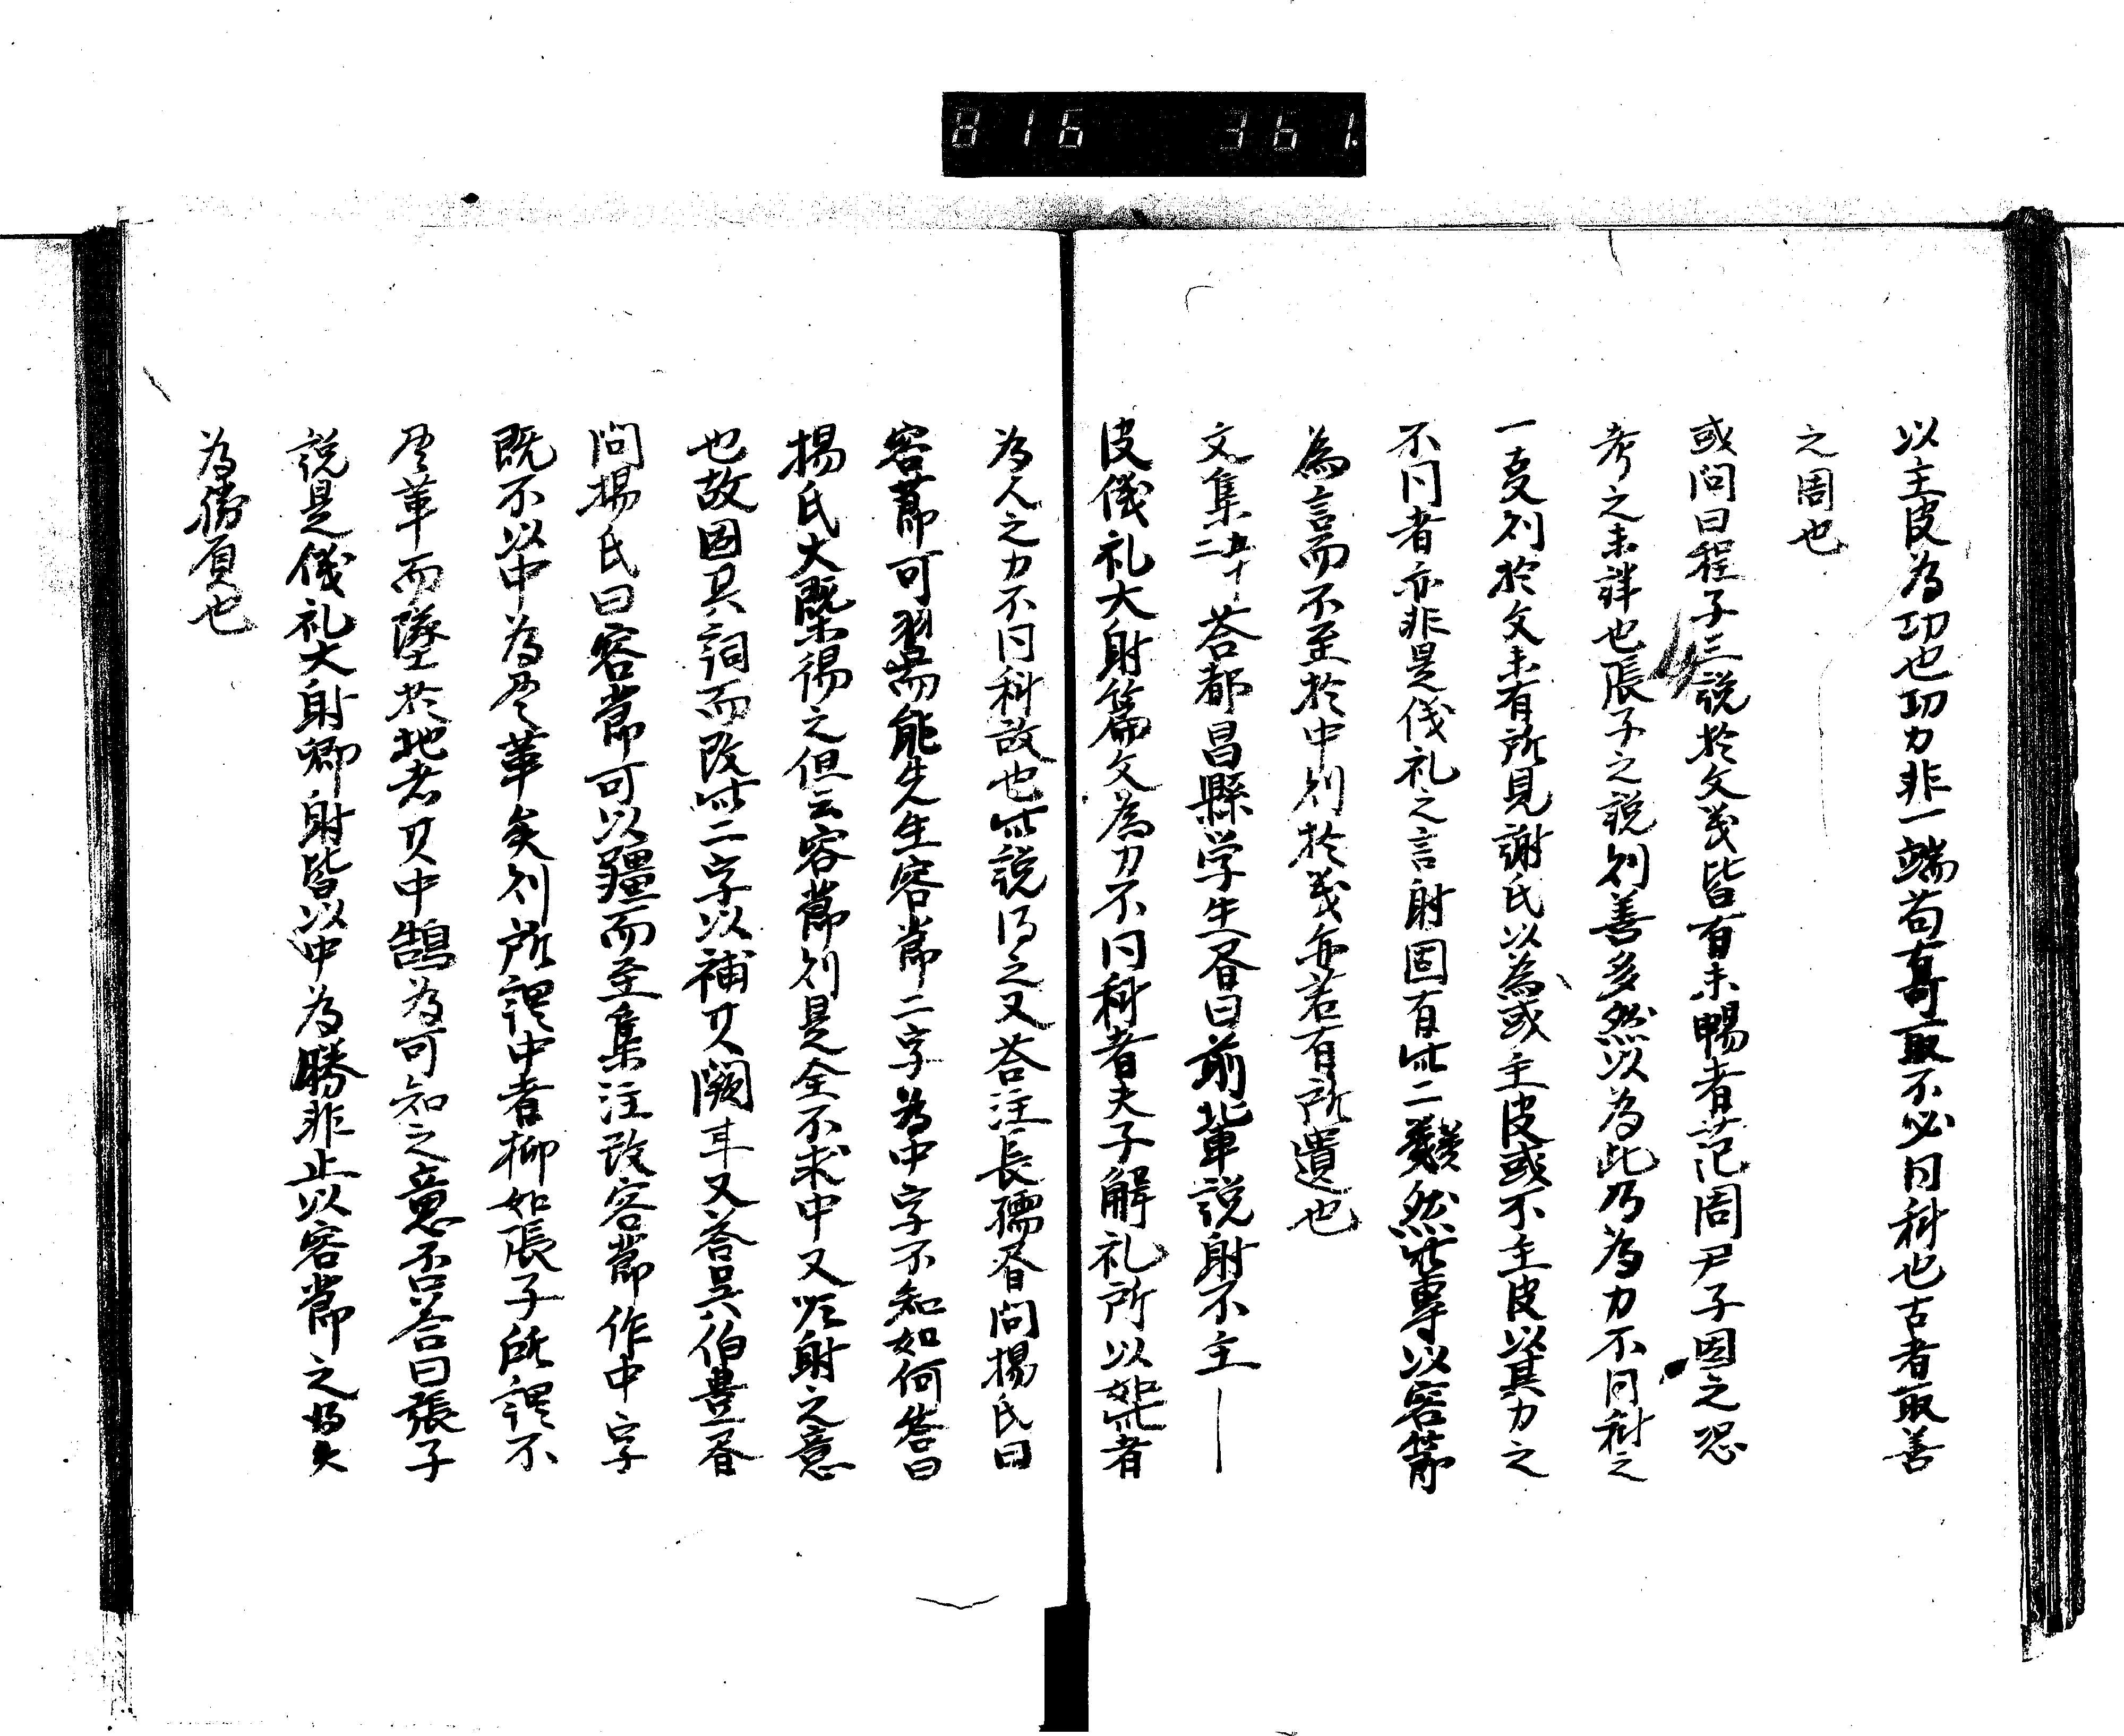 816 361.
以主皮為功也功力非一端苟有可取不必同科也古者取善
之周也
或問曰程子三説於文義皆有未暢者范周尹子因之恐
考之未詳也張子之説則善多然以為此乃為力不同科之
一事則於文未有所見謝氏以為或主皮或不主皮以其力之
不同者亦非是儀礼之言射固有此二類然此專以容節
為言而不至於中則於義亦若有所遺也
文集五十二荅都昌縣学生書曰前輩説射不主―
皮儀礼大射篇文為力不同科者夫子解礼所以如此者
為人之力不同科故也此説得之又荅汪長孺書問楊氏曰
容節可習而能先生容節二字為中字不知如何答曰
楊氏大槩得之但云容節則是全不求中又非射之意
也故因其詞而改此二字以補其闕耳又荅吳伯豊書
問楊氏曰容節可以彊而至集注改容節作中字
既不以中為尽革矣則所謂中者柳如張子所謂不
尽革而墜於地者其中鵠為可知之意否答曰張子
説是儀礼大射郷射皆以中為勝非止以容節之得失
為勝負也